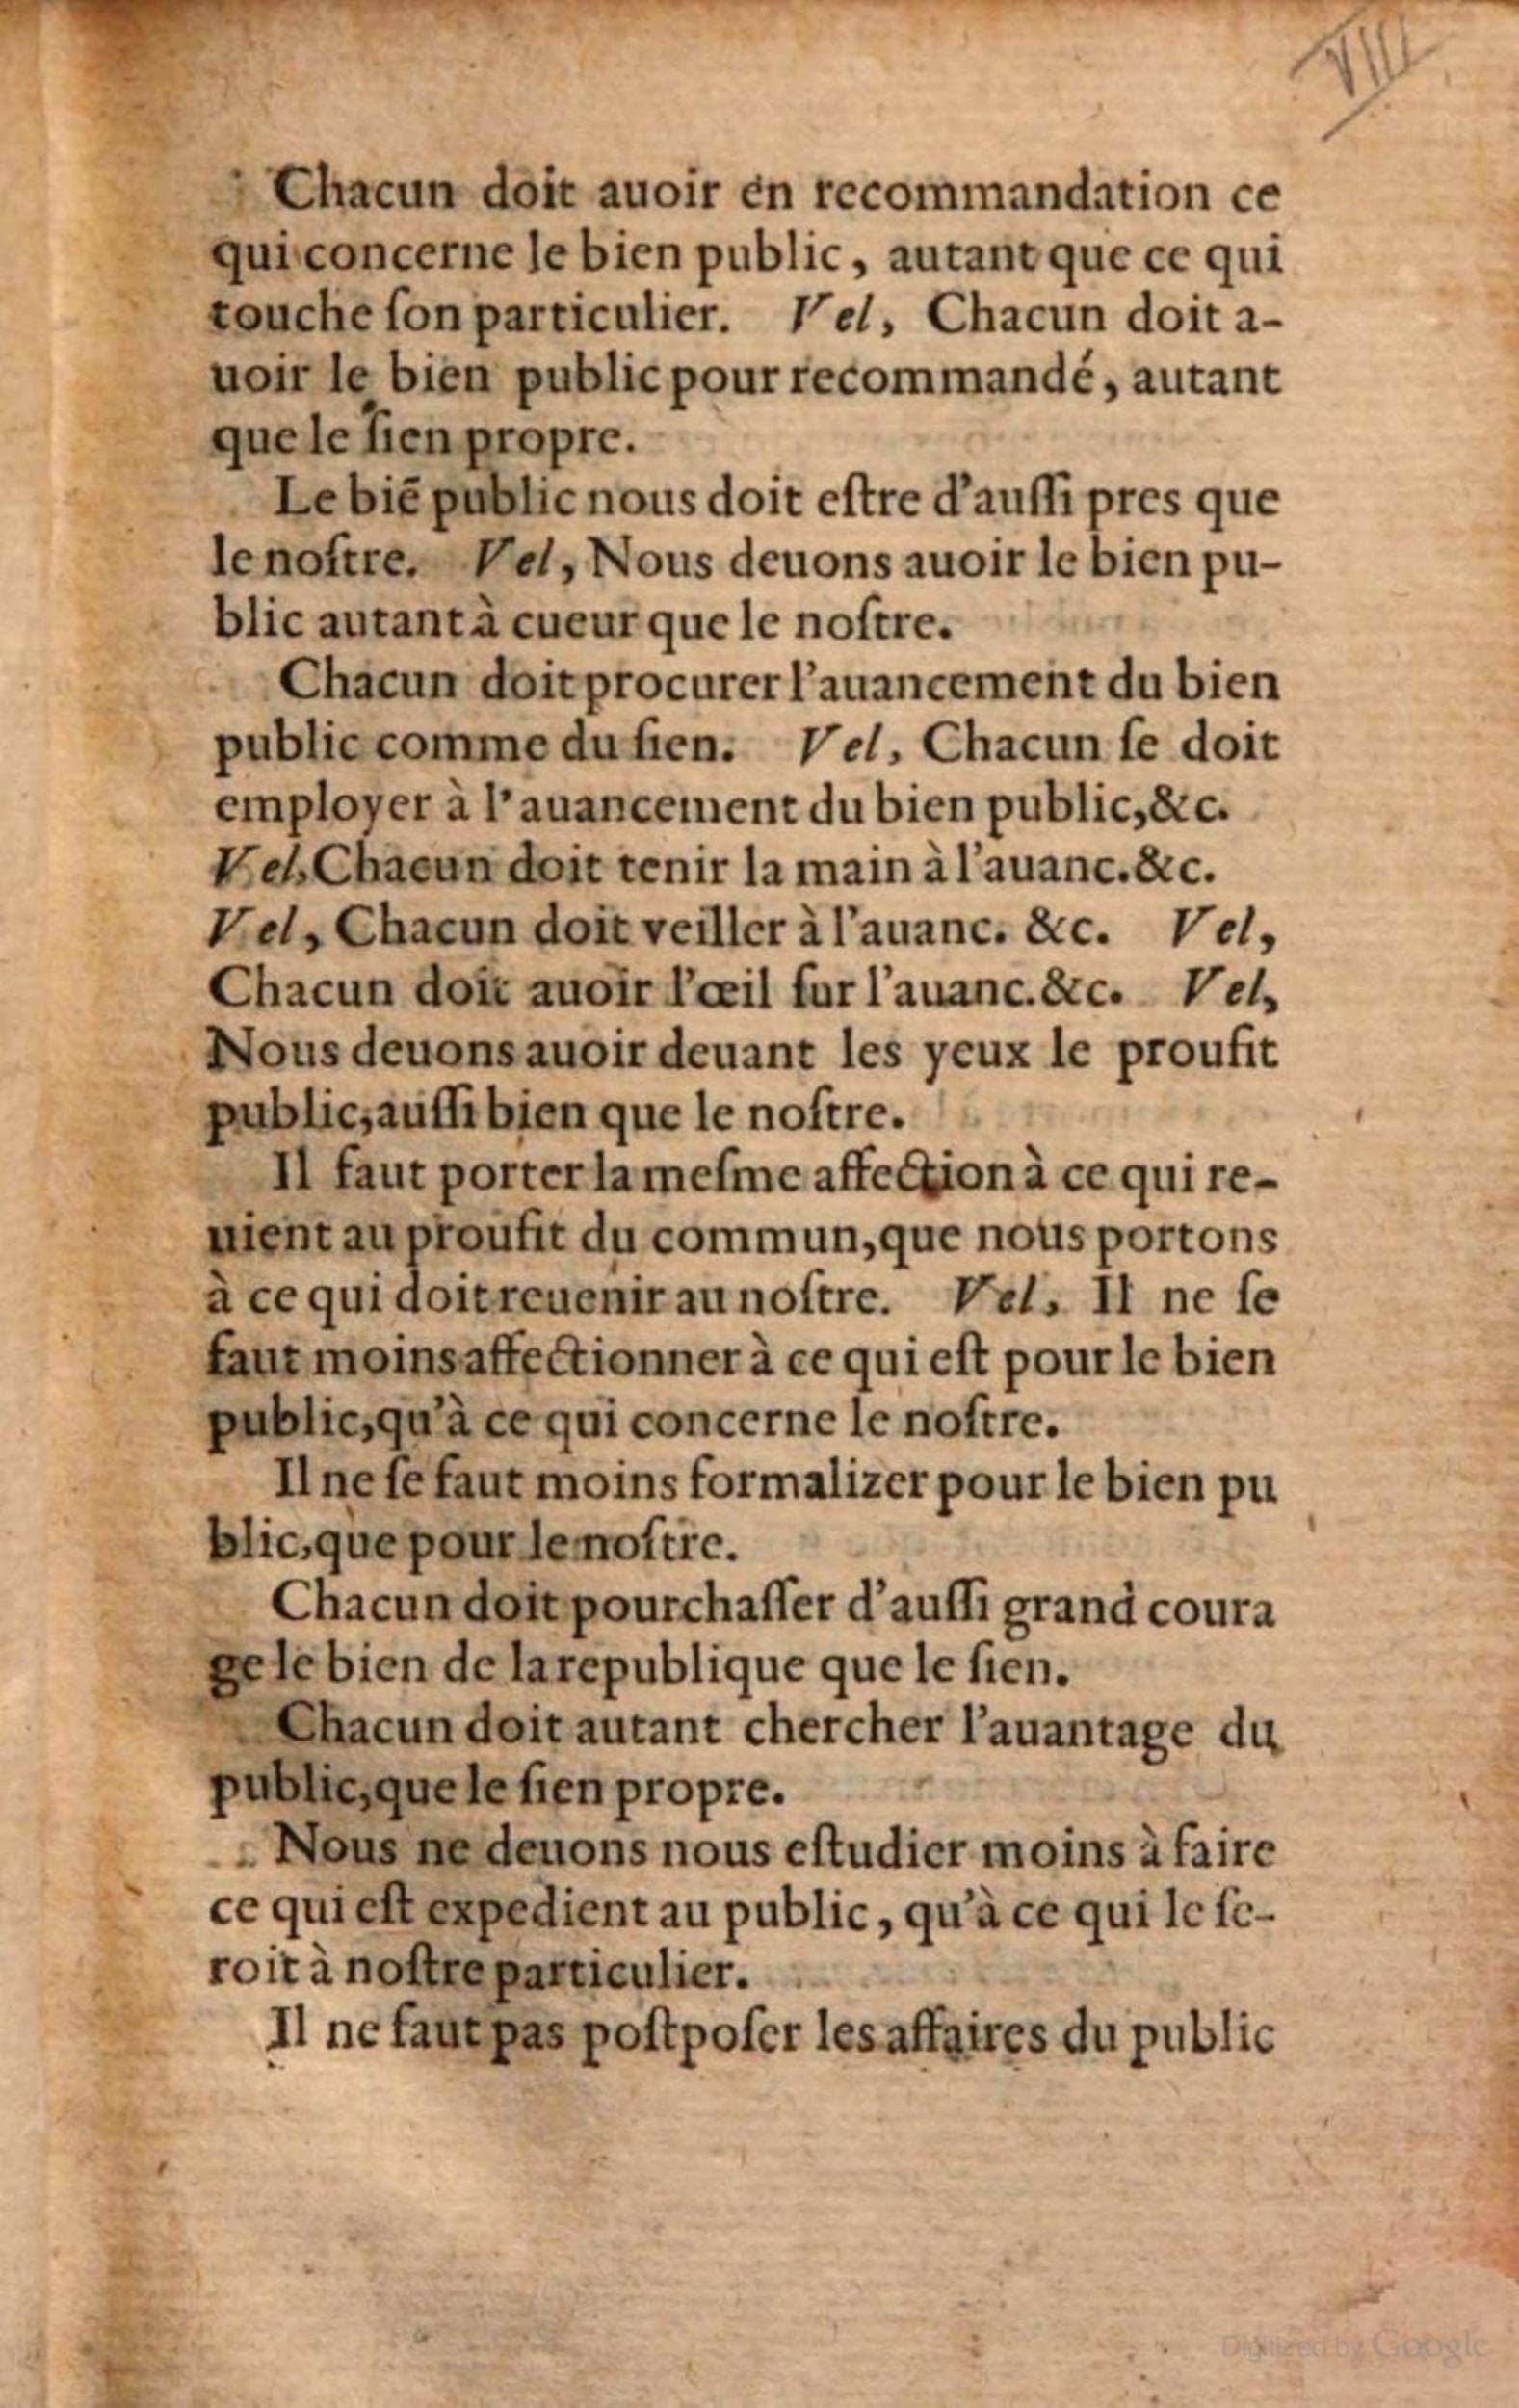 VIII
Chacun doit auoir en recommandation ce
qui concerne le bien public, autant que ce qui
touche ſon particulier. Vel, Chacun doit a-
uoir le bien public pour recommandé, autant
que le ſien propre.
Le biē public nous doit eſtre d'auſſi pres que
le noſtre. Vel, Nous deuons auoir le bien pu-
blic autant à cueur que le noſtre.
Chacun doit procurer l'auancement du bien
public comme du ſien. Vel, Chacun ſe doit
employer à l'auancement du bien public,&c.
Vel, Chacun doit tenir la main à l'auanc.&c.
Vel, Chacun doit veiller à l'auanc. &c. Vel,
Chacun doit auoir l'œil ſur l'auanc.&c. Vel,
Nous deuons auoir deuant les yeux le proufit
public,auſſi bien que le noſtre.
Il faut porter la meſme affection à ce qui re-
uient au proufit du commun,que nous portons
à ce qui doit reuenir au noſtre. Vel, Il ne ſe
faut moins affectionner à ce qui eſt pour le bien
public,qu'à ce qui concerne le noſtre.
Il ne ſe faut moins formalizer pour le bien pu
blic,que pour le noſtre.
Chacun doit pourchaſſer d'auſſi grand coura
ge le bien de la republique que le ſien.
Chacun doit autant chercher l'auantage du
public,que le ſien propre.
Nous ne deuons nous eſtudier moins à faire
ce qui eſt expedient au public, qu'à ce qui le ſe-
roit à noſtre particulier.
Il ne faut pas poſtpoſer les affaires du public
Digitized by Google